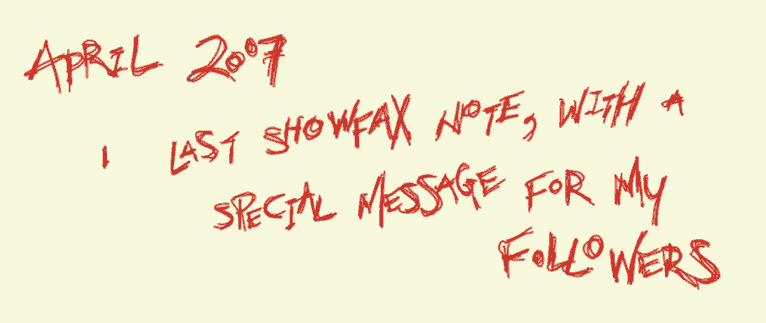 APRIL 2007
1 LAST SHOWFAX NOTE, WITH A
SPECIAL MESSAGE FOR MY
FOLLOWERS